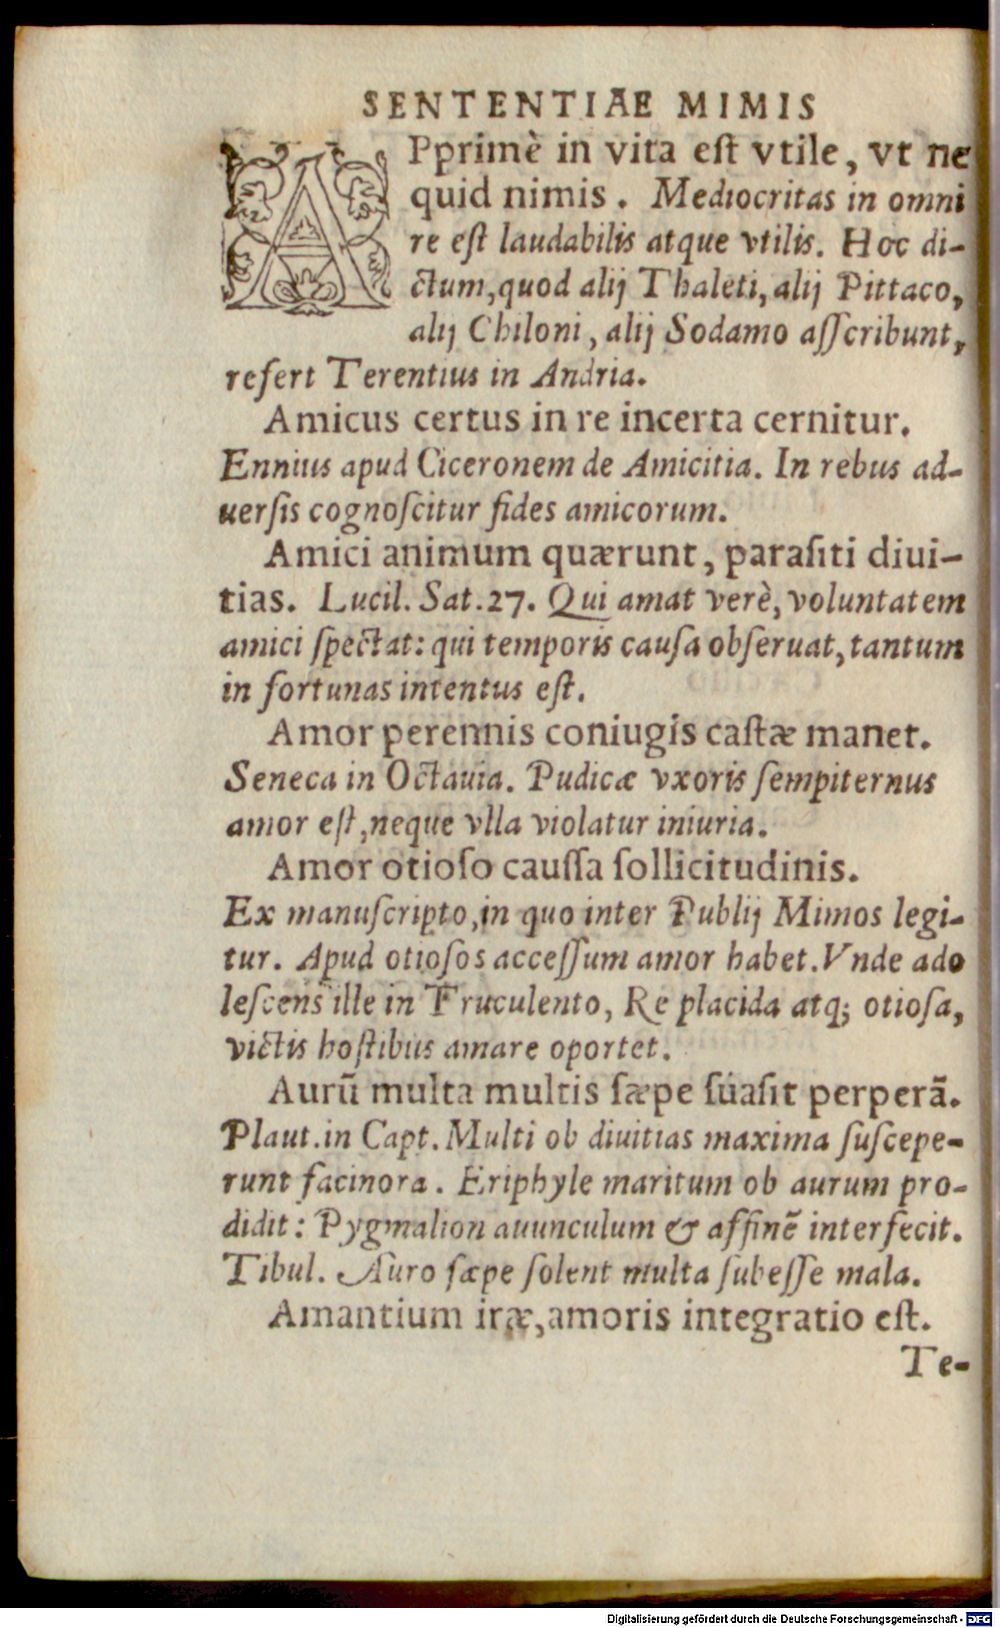 SENTENTIAE MIMIS
APprimè in vita eſt vtile, vt ne
quid nimis. Mediocritas in omni
re eſt laudabilis atque vtilis. Hoc di-
ctum, quod alij Thaleti, alij Pittaco,
alij Chiloni, alij Sodamo aſſcribunt,
refert Terentius in Andria.
Amicus certus in re incerta cernitur.
Ennius apud Ciceronem de Amicitia. In rebus ad-
uerſis cognoſcitur fides amicorum.
Amici animum quærunt, paraſiti diui-
tias. Lucil. Sat. 27. Qui amat verè, voluntatem
amici ſpectat: qui temporis cauſa obſeruat, tantum
in fortunas intentus eſt.
Amor perennis coniugis caſtæ manet.
Seneca in Octauia. Pudicæ vxoris ſempiternus
amor eſt, neque vlla violatur iniuria.
Amor otioſo cauſſa ſollicitudinis.
Ex manuſcripto, in quo inter Publij Mimos legi-
tur. Apud otioſos acceſſum amor habet. Vnde ado
leſcens ille in Truculento, Re placida atq; otioſa,
victis hoſtibus amare oportet.
Aurū multa multis ſæpe ſúaſit perperã.
Plaut. in Capt. Multi ob diuitias maxima ſuſcepe-
runt facinora. Eriphyle maritum ob aurum pro-
didit: Pygmalion auunculum & affinē interfecit.
Tibul. Auro ſæpe ſolent multa ſubeſſe mala.
Amantium iræ, amoris integratio eſt.
Te-
Digitalisierung gefördert durch die Deutsche Forschungsgemeinschaft - DFG